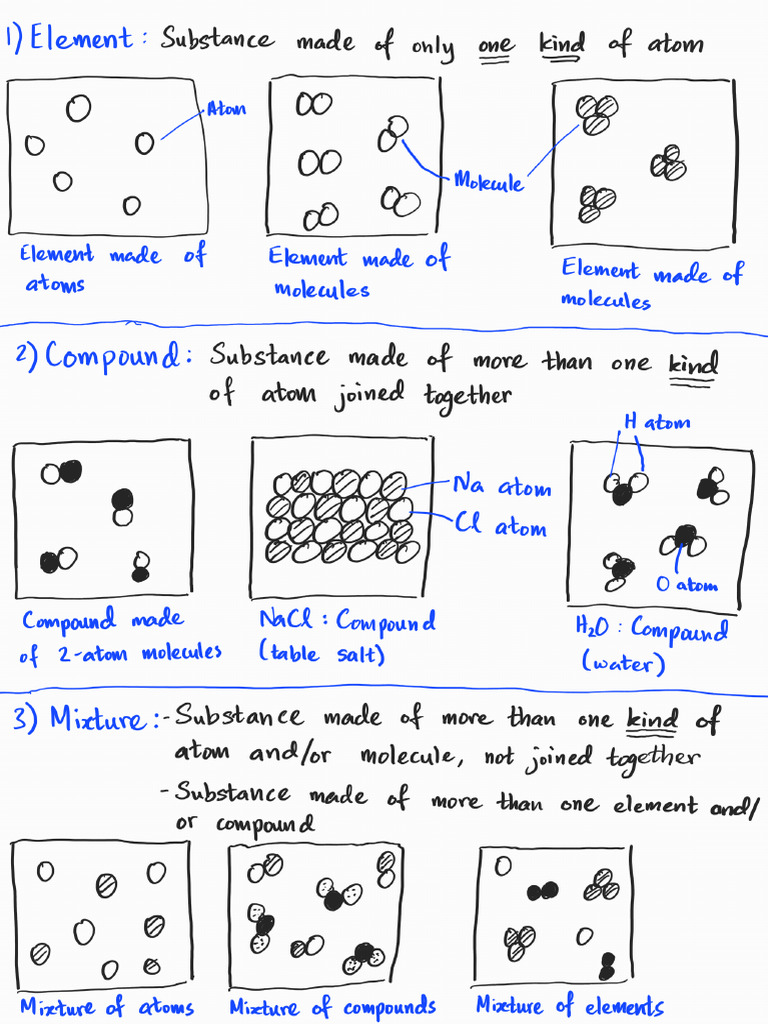 1) Element: Substance made of only one kind of atom
Atom
Molecule
Element made of
atoms
Element made of
molecules
Element made of
molecules
2) Compound: Substance made of more than one kind
of atom joined together
H atom
Na atom
Cl atom
O atom
Compound made
of 2-atom molecules
NaCl: Compound
(table salt)
H₂O: Compound
(water)
3) Mixture: - Substance made of more than one kind of
atom and/or molecule, not joined together
- Substance made of more than one element and/
or compound
Mixture of atoms
Mixture of compounds
Mixture of elements